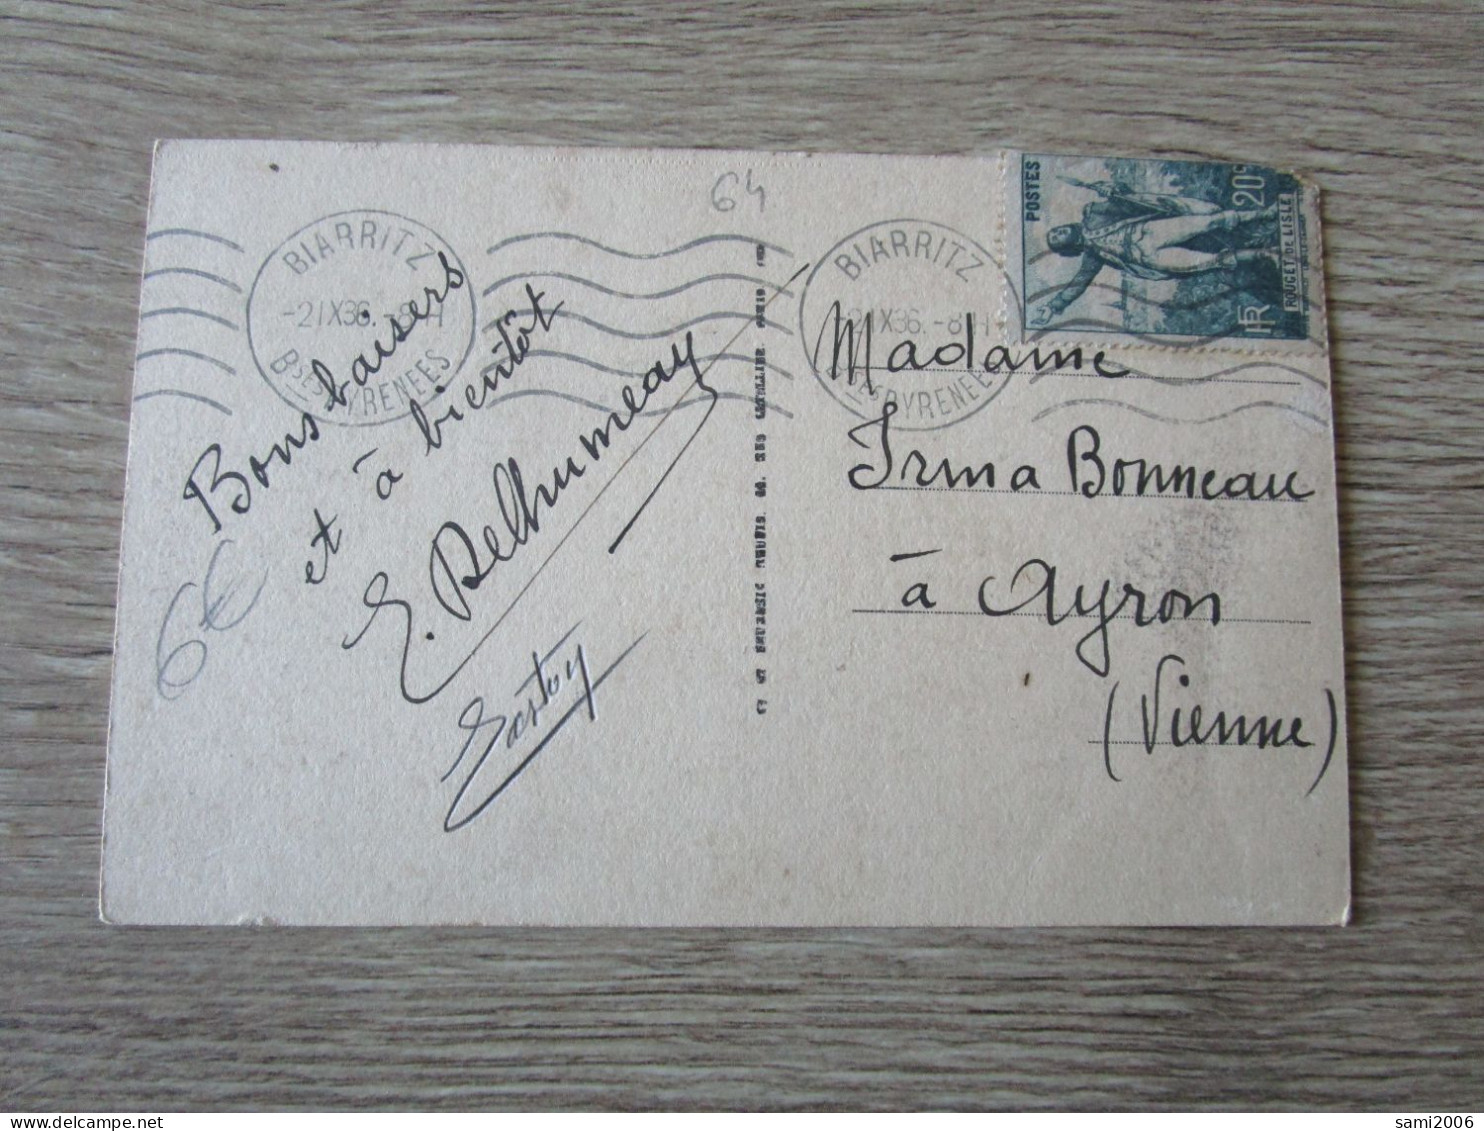 64
BIARRITZ
-2 IX 36. -8H
BSES PYRENEES
BIARRITZ
-2 IX 36. -8H
BSES PYRENEES
POSTES
20c
ROUGET DE LISLE
RF
Bons baisers
et à bientôt
E. Belhumeau
6€
Madame
Irma Bonneau
à Ayron
(Vienne)
sami2006